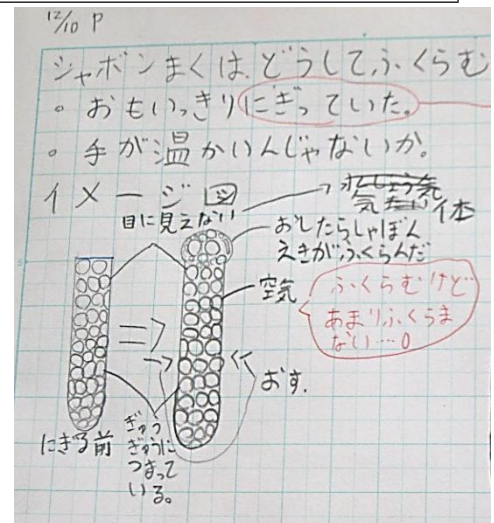 12/10 P
シャボンまくは、どうしてふくらむ
・おもいっきりにぎっていた。
・手が温かいんじゃないか。
イメージ図
目に見えない
気体
おしたらしゃぼん
えきがふくらんだ
空気
ふくらむけど
あまりふくらま
ない…。
おす.
にぎる前
ぎゅう
ぎゅうに
つまって
いる。